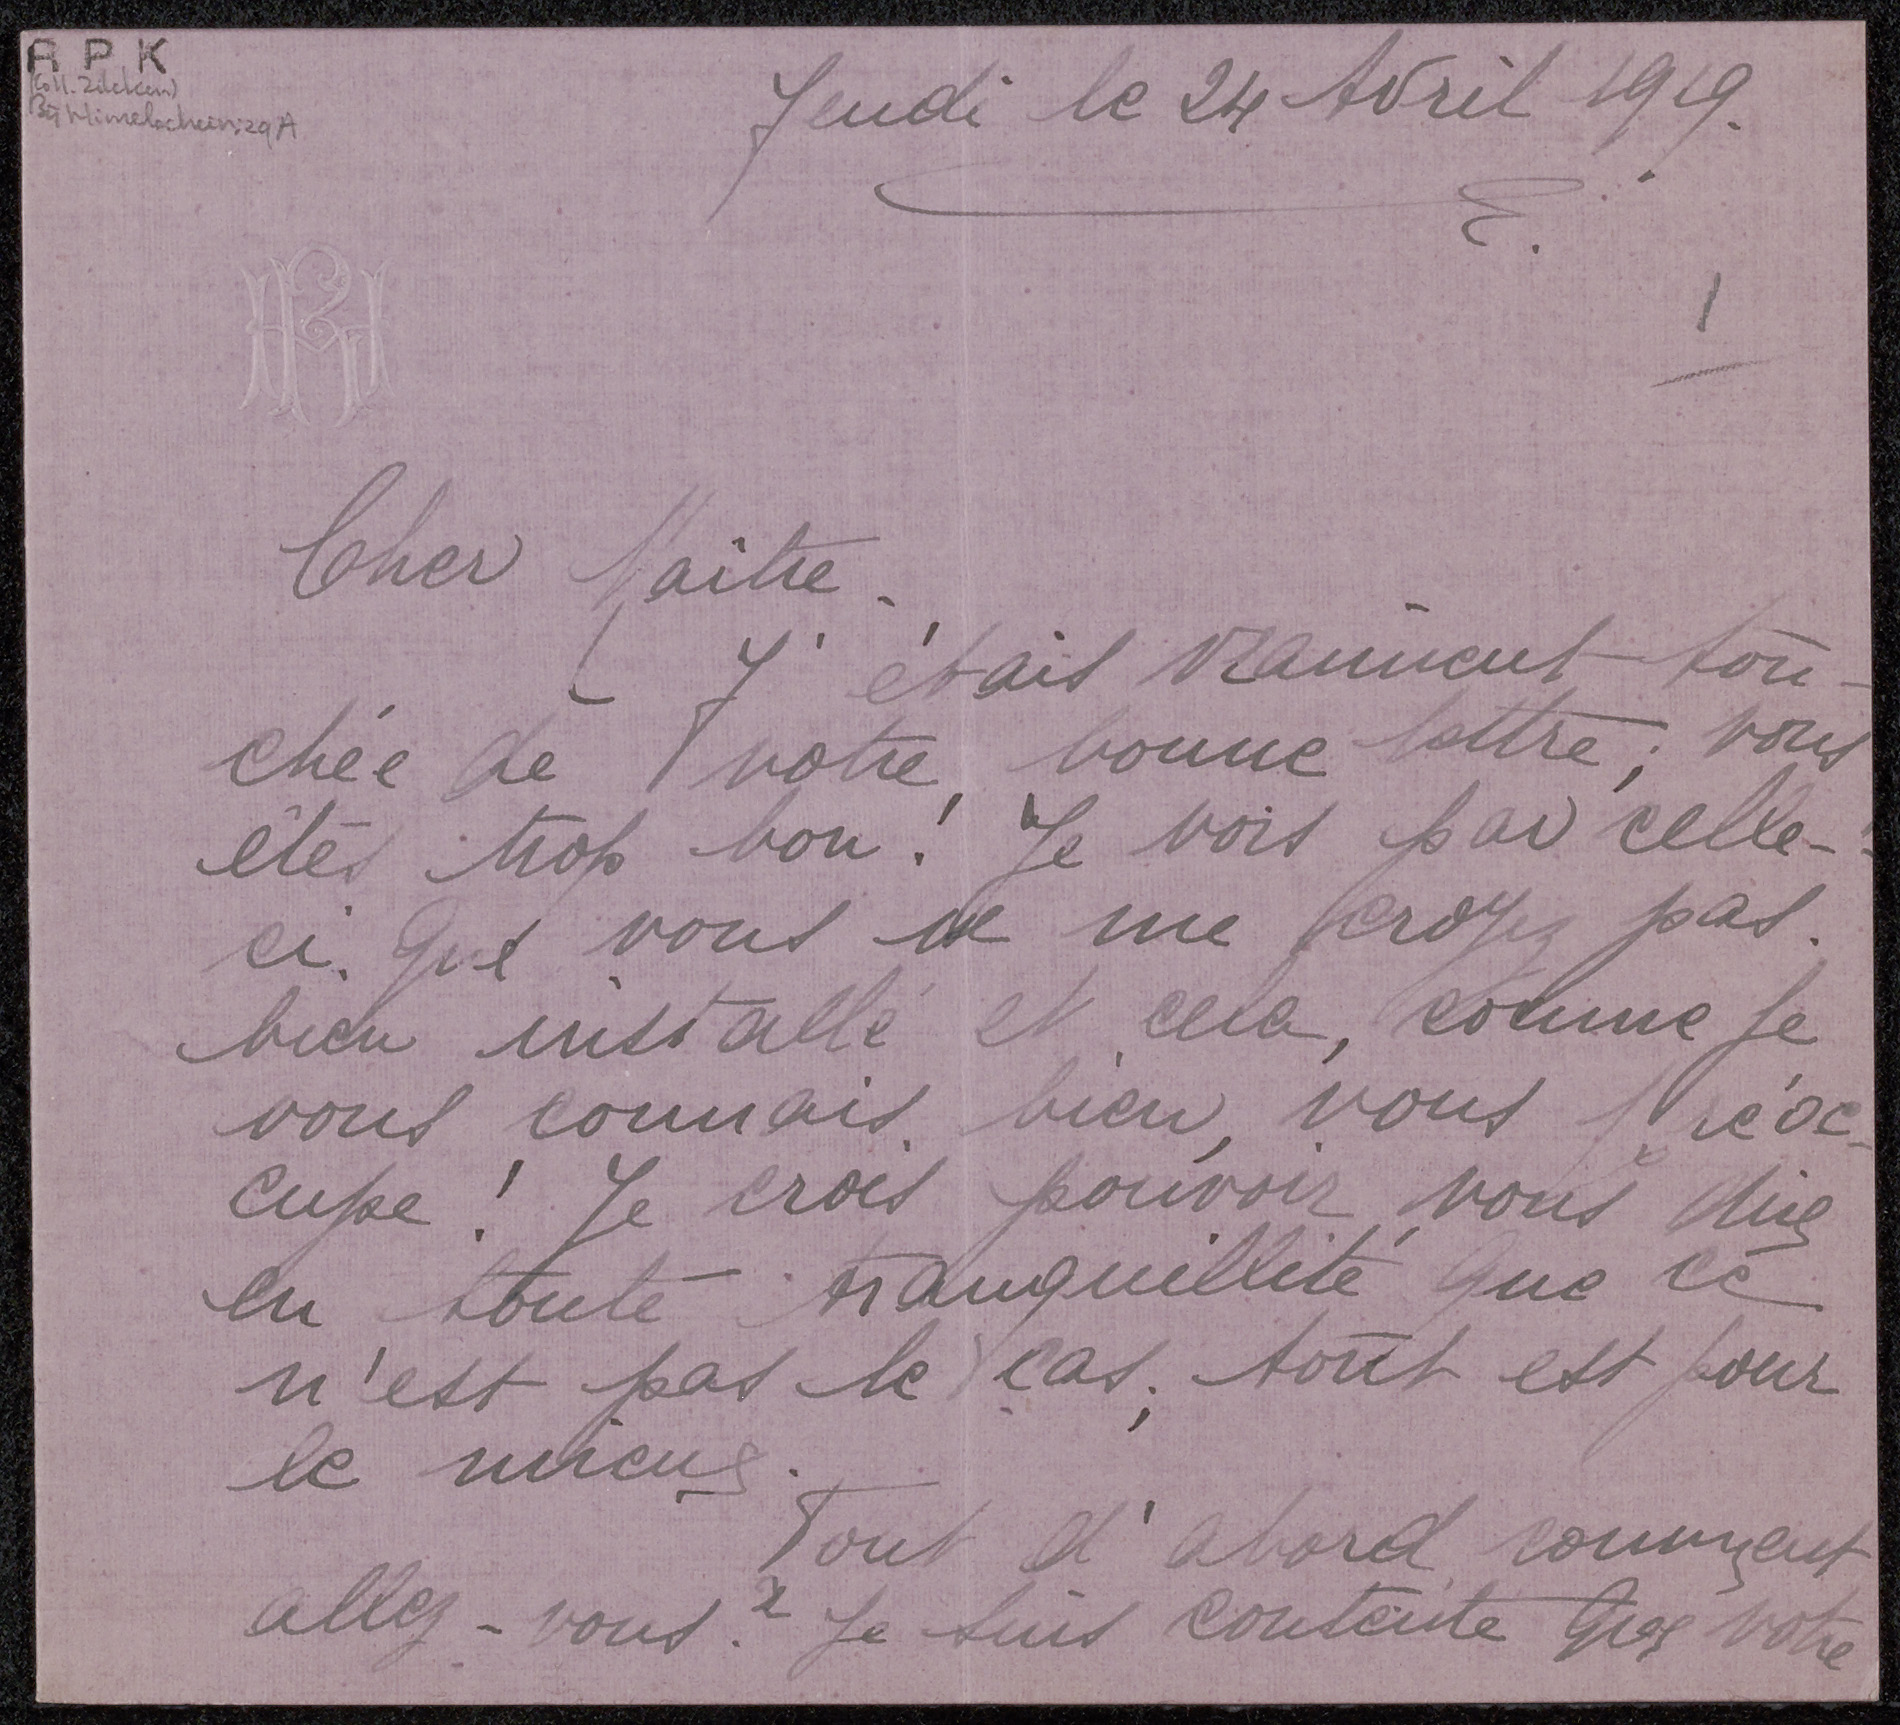 R P K
(coll. Zilcken)
Jeudi le 24 Avril 1919.
E.
1
RH
Cher Maître.
J'étais vraiment tou-
chée de votre bonne lettre; vous
êtes trop bon! Je vois par celle-
ci que vous ne me croyez pas
bien installé et cela, comme je
vous connais bien, vous préoc-
cupe! Je crois pouvoir vous dire
en toute tranquillité que ce
n'est pas le cas; tout est pour
le mieux.
Tout d'abord comment
allez-vous? Je suis contente que votre